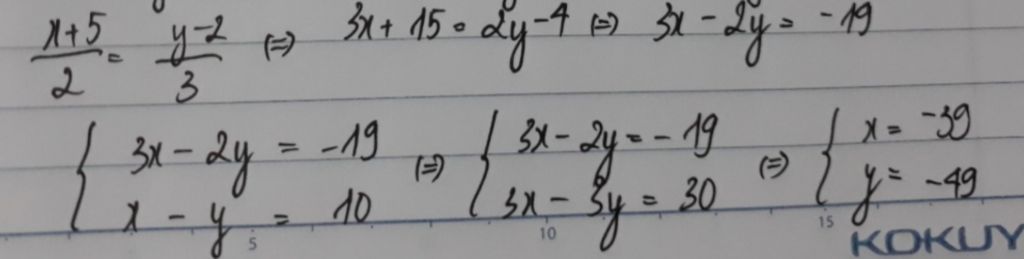 x+5/2 = y-2/3 (=) 3x + 15 = 2y - 4 (=) 3x - 2y = -19
{ 3x - 2y = -19 (=) { 3x - 2y = -19 (=) { x = -39
x - y = 10 3x - 3y = 30 y = -49
5 10 15
KOKUY